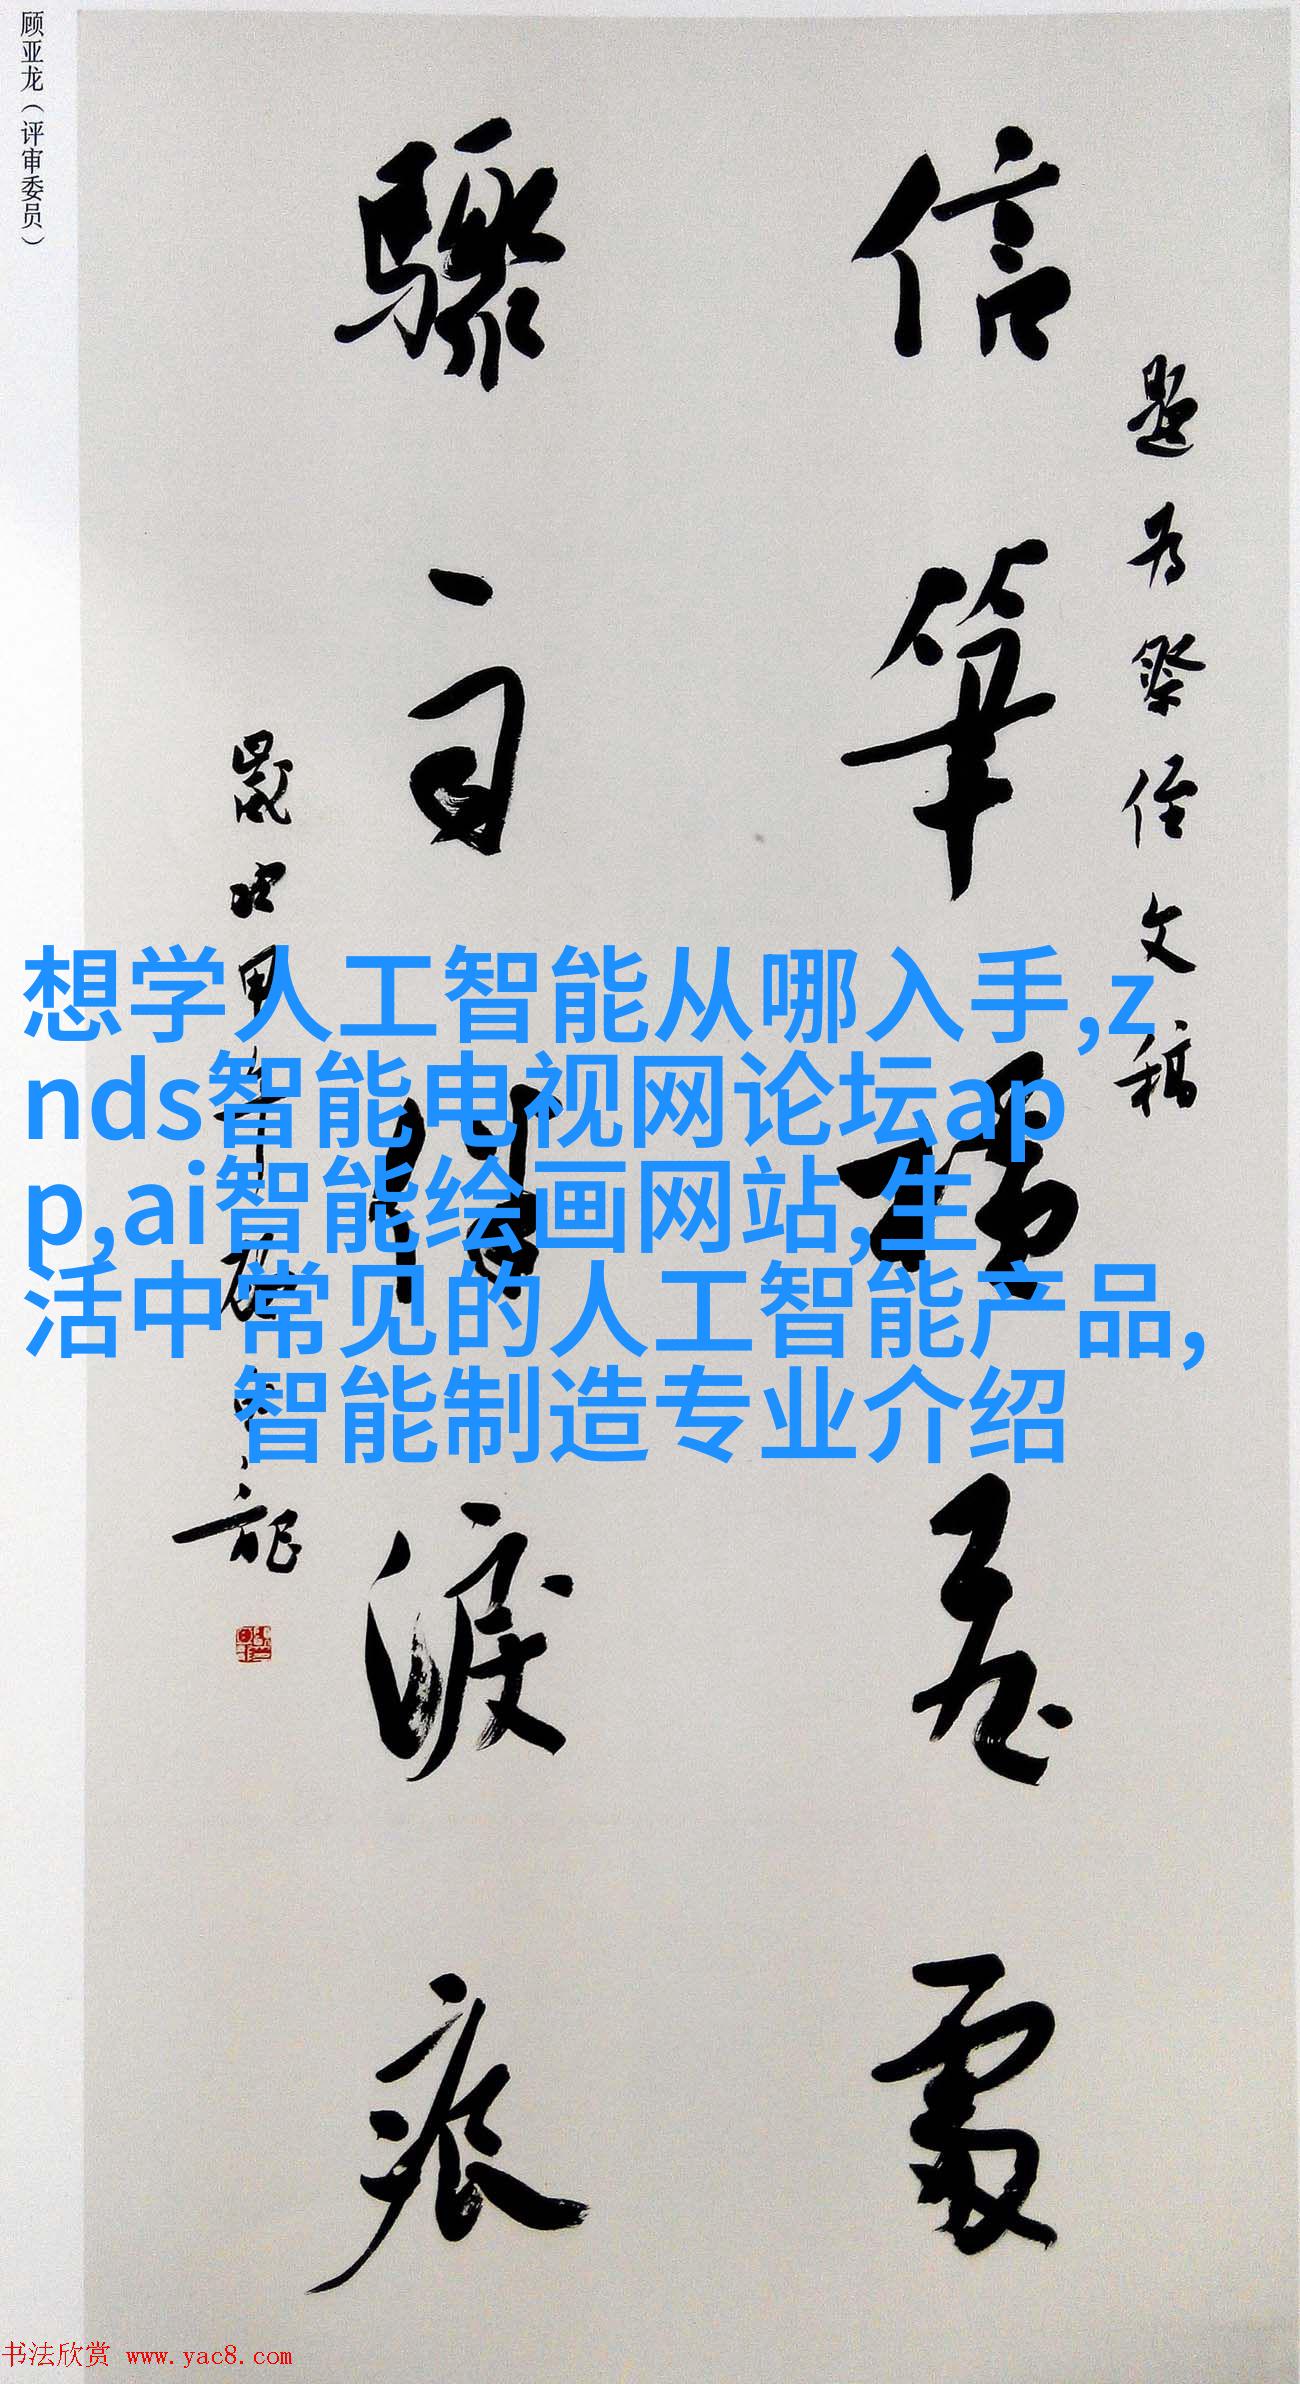 顾亚龙（评审委员）
題为祭侄文稿
信筆處
驟淚痕
歲次甲午龍
想学人工智能从哪入手,z
nds智能电视网论坛ap
p,ai智能绘画网站,生
活中常见的人工智能产品,
智能制造专业介绍
书法欣赏 www.yac8.com